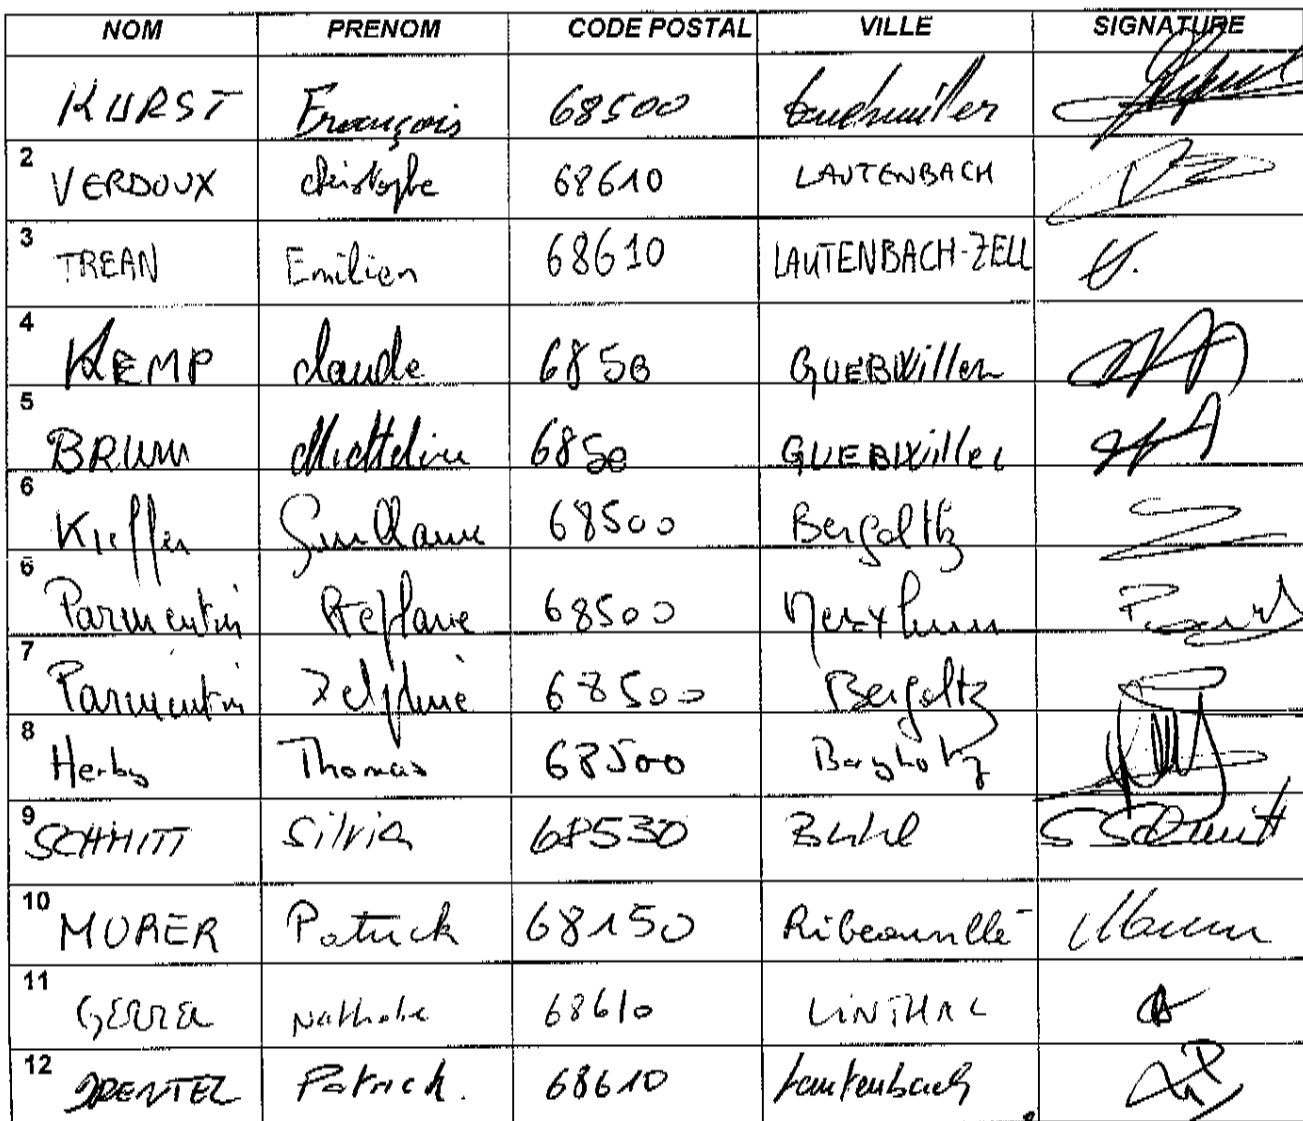 NOM PRENOM CODE POSTAL VILLE SIGNATURE
KURST François 68500 Guebwiller
2 VERDOUX christophe 68610 LAUTENBACH
3 TREAN Emilien 68610 LAUTENBACH-ZELL
4 KEMP claude 6850 GUEBWiller
5 BRUM 6850 GUEBWiller
6 Kieffer Guillaume 68500 Bergoltz
6 Parmentin Stephane 68500
7 Parmentin Delphine 68500 Bergoltz
8 Herby Thomas 68500 Bergholtz
9 SCHMITT Silvia 68530 Buhl S Schmitt
10 MURER Patrick 68150 Ribeauvillé
11 Nathalie 68610 LINTHAL
12 Patrick. 68610 Lautenbach